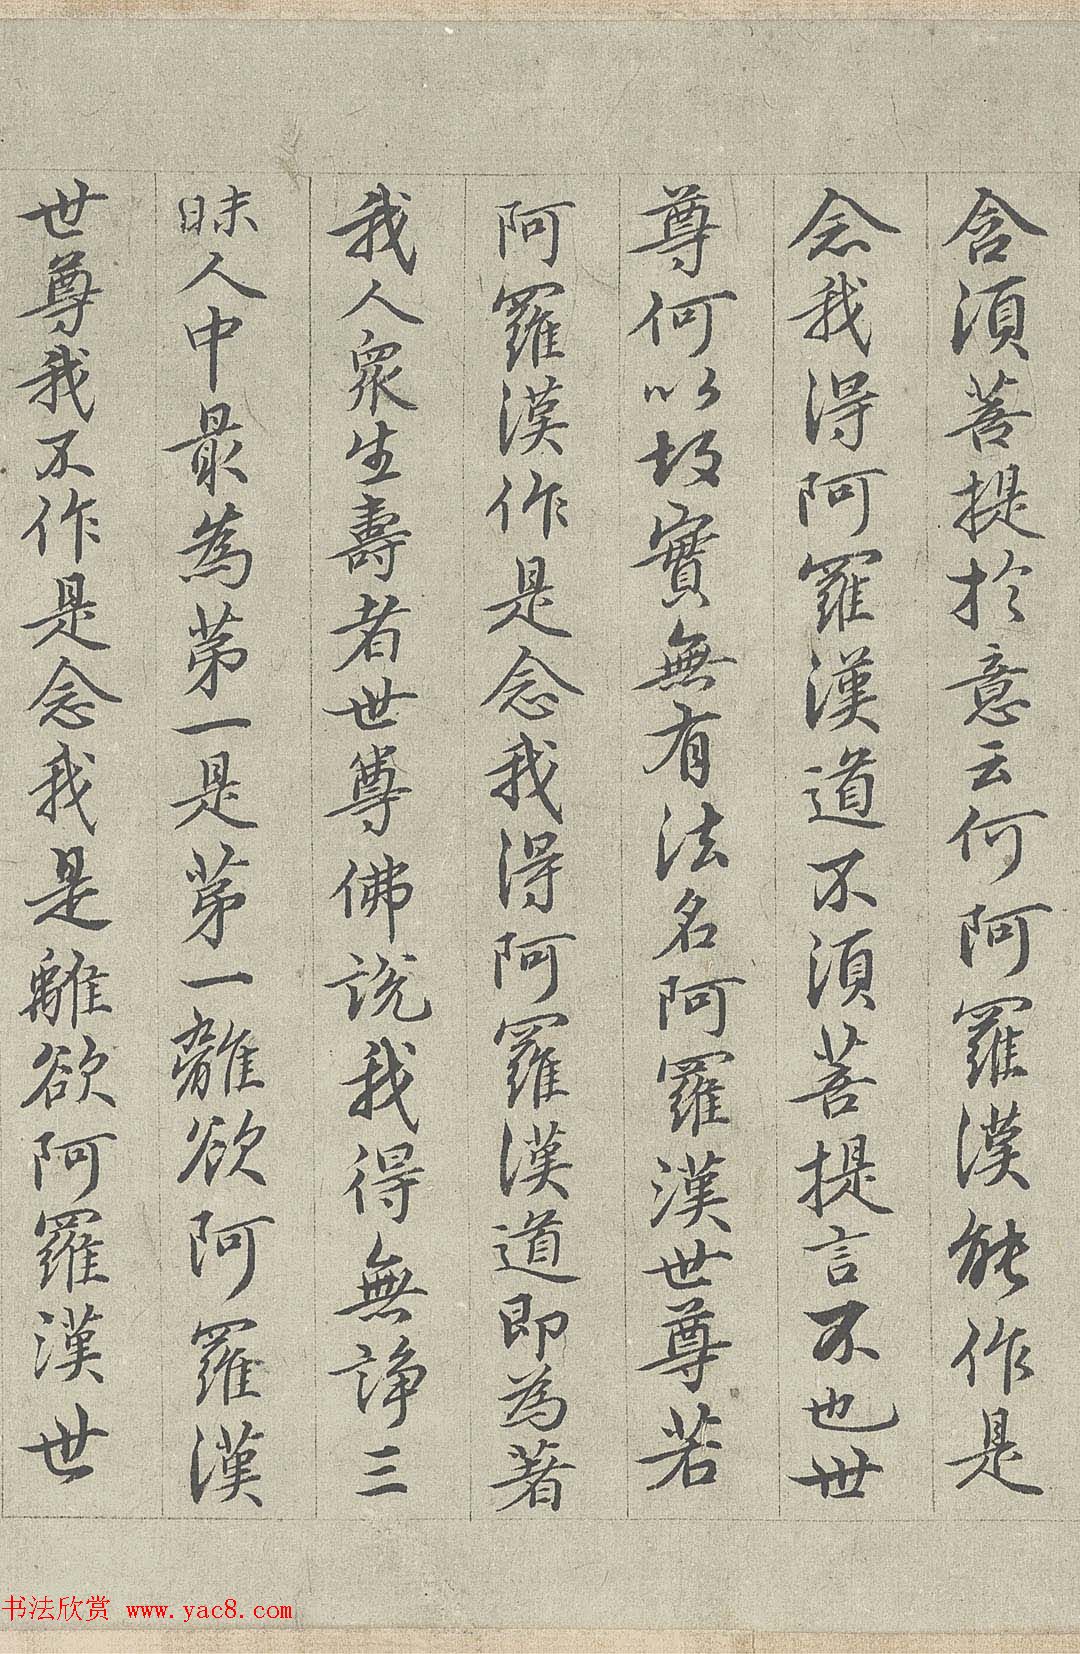 含須菩提於意云何阿羅漢能作是
念我得阿羅漢道不須菩提言不也世
尊何以故實無有法名阿羅漢世尊若
阿羅漢作是念我得阿羅漢道即為著
我人眾生壽者世尊佛說我得無諍三
昧人中最為第一是第一離欲阿羅漢
世尊我不作是念我是離欲阿羅漢世
书法欣赏 www.yac8.com